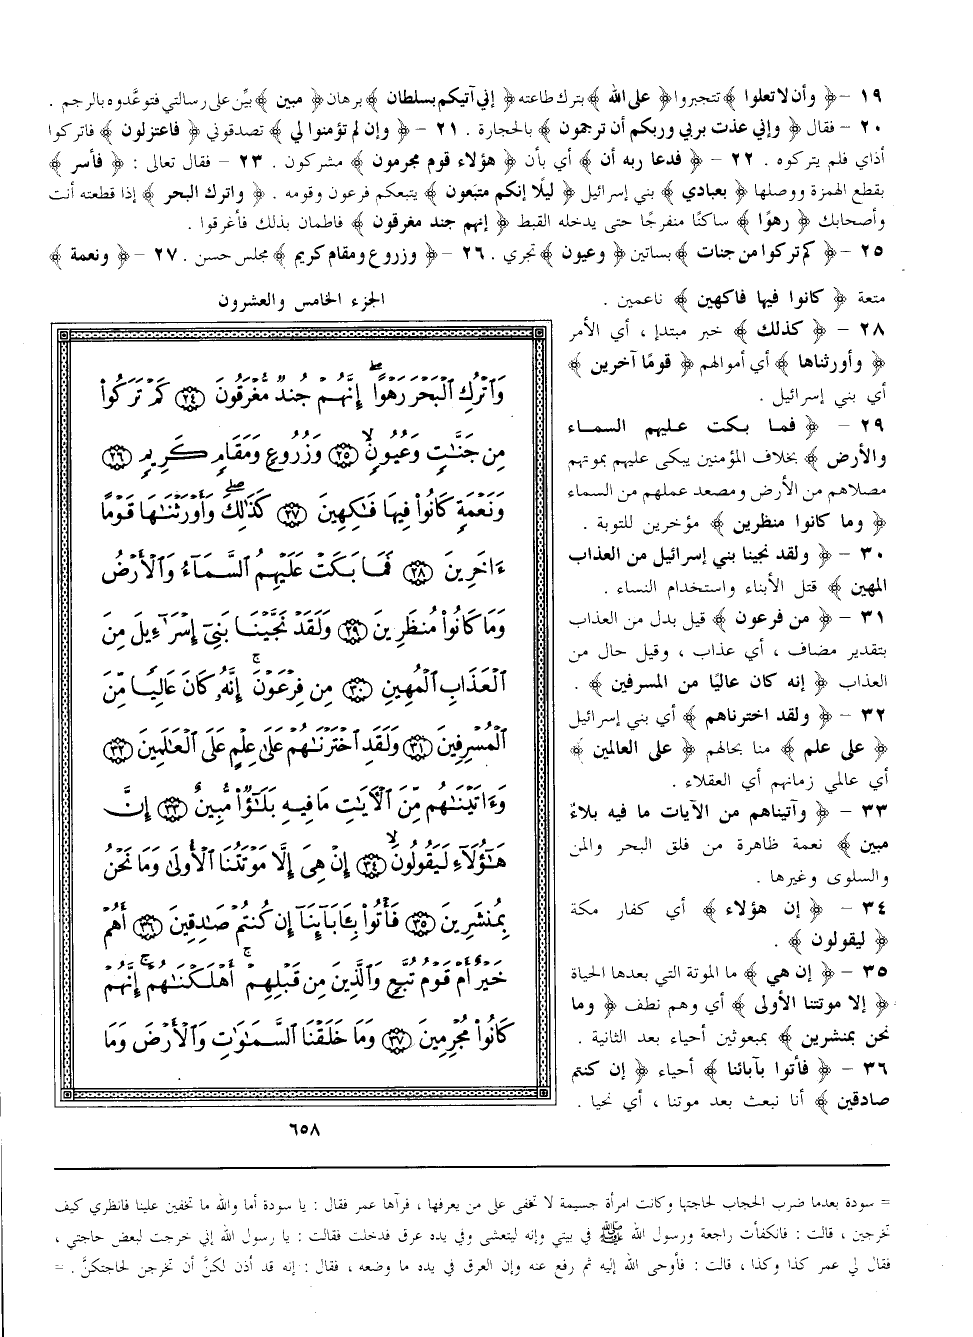 ١٩ - ﴿ وأن لا تعلوا ﴾ تتجبروا ﴿ على الله ﴾ بترك طاعته ﴿ إني آتيكم بسلطان ﴾ برهان ﴿ مبين ﴾ بيِّن على رسالتي فتوعَّدوه بالرجم .
٢٠ - فقال ﴿ وإني عذت بربي وربكم أن ترجمون ﴾ بالحجارة . ٢١ - ﴿ وإن لم تؤمنوا لي ﴾ تصدقوني ﴿ فاعتزلون ﴾ فاتركوا
أذاي فلم يتركوه . ٢٢ - ﴿ فدعا ربه أن ﴾ أي بأن ﴿ هؤلاء قوم مجرمون ﴾ مشركون . ٢٣ - فقال تعالى : ﴿ فأسر ﴾
بقطع الهمزة ووصلها ﴿ بعبادي ﴾ بني إسرائيل ﴿ ليلًا إنكم متبعون ﴾ يتبعكم فرعون وقومه . ﴿ واترك البحر ﴾ إذا قطعته أنت
وأصحابك ﴿ رهوًا ﴾ ساكنًا منفرجًا حتى يدخله القبط ﴿ إنهم جند مغرقون ﴾ فاطمان بذلك فأغرقوا .
٢٥ - ﴿ كم تركوا من جنات ﴾ بساتين ﴿ وعيون ﴾ تجري . ٢٦ - ﴿ وزروع ومقام كريم ﴾ مجلس حسن . ٢٧ - ﴿ ونعمة ﴾
متعة ﴿ كانوا فيها فاكهين ﴾ ناعمين .
٢٨ - ﴿ كذلك ﴾ خبر مبتدإ ، أي الأمر
﴿ وأورثناها ﴾ أي أموالهم ﴿ قومًا آخرين ﴾
أي بني إسرائيل .
٢٩ - ﴿ فما بكت عليهم السماء
والأرض ﴾ بخلاف المؤمنين يبكى عليهم بموتهم
مصلاهم من الأرض ومصعد عملهم من السماء
﴿ وما كانوا منظرين ﴾ مؤخرين للتوبة .
٣٠ - ﴿ ولقد نجينا بني إسرائيل من العذاب
المهين ﴾ قتل الأبناء واستخدام النساء .
٣١ - ﴿ من فرعون ﴾ قيل بدل من العذاب
بتقدير مضاف ، أي عذاب ، وقيل حال من
العذاب ﴿ إنه كان عاليًا من المسرفين ﴾ .
٣٢ - ﴿ ولقد اخترناهم ﴾ أي بني إسرائيل
﴿ على علم ﴾ منا بحالهم ﴿ على العالمين ﴾
أي عالمي زمانهم أي العقلاء .
٣٣ - ﴿ وآتيناهم من الآيات ما فيه بلاءٌ
مبين ﴾ نعمة ظاهرة من فلق البحر والمن
والسلوى وغيرها .
٣٤ - ﴿ إن هؤلاء ﴾ أي كفار مكة
﴿ ليقولون ﴾ .
٣٥ - ﴿ إن هي ﴾ ما الموتة التي بعدها الحياة
﴿ إلا موتتنا الأولى ﴾ أي وهم نطف ﴿ وما
نحن بمنشرين ﴾ بمبعوثين أحياء بعد الثانية .
٣٦ - ﴿ فأتوا بآبائنا ﴾ أحياء ﴿ إن كنتم
صادقين ﴾ أنا نبعث بعد موتنا ، أي نحيا .
الجزء الخامس والعشرون
وَٱتْرُكِ ٱلْبَحْرَ رَهْوًا ۖ إِنَّهُمْ جُندٌ مُّغْرَقُونَ ٢٤ كَمْ تَرَكُوا۟
مِن جَنَّٰتٍ وَعُيُونٍ ۙ ٢٥ وَزُرُوعٍ وَمَقَامٍ كَرِيمٍ ٢٦
وَنَعْمَةٍ كَانُوا۟ فِيهَا فَٰكِهِينَ ٢٧ كَذَٰلِكَ ۖ وَأَوْرَثْنَٰهَا قَوْمًا
ءَاخَرِينَ ٢٨ فَمَا بَكَتْ عَلَيْهِمُ ٱلسَّمَآءُ وَٱلْأَرْضُ
وَمَا كَانُوا۟ مُنظَرِينَ ٢٩ وَلَقَدْ نَجَّيْنَا بَنِىٓ إِسْرَٰٓءِيلَ مِنَ
ٱلْعَذَابِ ٱلْمُهِينِ ٣٠ مِن فِرْعَوْنَ ۚ إِنَّهُۥ كَانَ عَالِيًا مِّنَ
ٱلْمُسْرِفِينَ ٣١ وَلَقَدِ ٱخْتَرْنَٰهُمْ عَلَىٰ عِلْمٍ عَلَى ٱلْعَٰلَمِينَ ٣٢
وَءَاتَيْنَٰهُم مِّنَ ٱلْءَايَٰتِ مَا فِيهِ بَلَٰٓؤٌا۟ مُّبِينٌ ٣٣ إِنَّ
هَٰٓؤُلَآءِ لَيَقُولُونَ ۙ ٣٤ إِنْ هِىَ إِلَّا مَوْتَتُنَا ٱلْأُولَىٰ وَمَا نَحْنُ
بِمُنشَرِينَ ٣٥ فَأْتُوا۟ بِـَٔابَآئِنَآ إِن كُنتُمْ صَٰدِقِينَ ٣٦ أَهُمْ
خَيْرٌ أَمْ قَوْمُ تُبَّعٍ وَٱلَّذِينَ مِن قَبْلِهِمْ ۚ أَهْلَكْنَٰهُمْ ۖ إِنَّهُمْ
كَانُوا۟ مُجْرِمِينَ ٣٧ وَمَا خَلَقْنَا ٱلسَّمَٰوَٰتِ وَٱلْأَرْضَ وَمَا
٦٥٨
= سودة بعدما ضرب الحجاب لحاجتها وكانت امرأة جسيمة لا تخفى على من يعرفها ، فرآها عمر فقال : يا سودة أما والله ما تخفين علينا فانظري كيف
تخرجين ، قالت : فانكفأت راجعة ورسول الله ﷺ في بيتي وإنه ليتعشى وفي يده عرق فدخلت فقالت : يا رسول الله إني خرجت لبعض حاجتي ،
فقال لي عمر كذا وكذا ، قالت : فأوحى الله إليه ثم رفع عنه وإن العرق في يده ما وضعه ، فقال : إنه قد أذن لكنَّ أن تخرجن لحاجتكنَّ . =